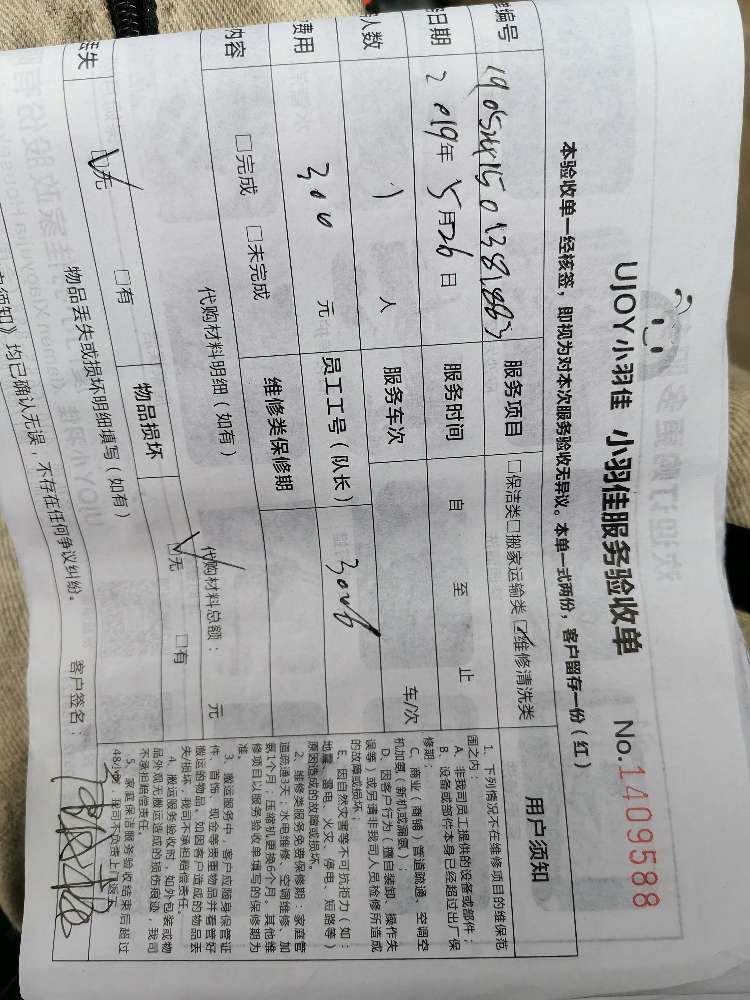 UJOY小羽佳 小羽佳服务验收单 No.1409588
本验收单一经核签，即视为对本次服务验收无异议。本单一式两份，客户留存一份（红）
编号 服务项目 □保洁类□搬家运输类☑维修清洗类
日期 2019年5月26日 服务时间 自 至 止
人数 1 人 服务车次 车/次
费用 300 元 员工工号（队长） 3006
内容 □完成 □未完成 维修类保修期
代购材料明细（如有） 代购材料总额： 元
丢失 ☑无 □有 物品损坏 ☑无 □有
物品丢失或损坏明细填写（如有）
须知》均已确认无误，不存在任何争议纠纷。 客户签名：
用户须知
1、下列情况不在维修项目的维保范
围之内：
A、非我司员工提供的设备或部件；
B、设备或部件本身已经超过出厂保
修期；
C、商业（商铺）管道疏通、空调空
机加氨（新机或漏氨）；
D、因客户行为（擅自装卸、操作失
误等）或另请非我司人员检修所造成
的故障或损坏；
E、因自然灾害等不可抗拒力（如：
地震、雷电、火灾、停电、短路等）
原因造成的故障或损坏。
2、维修类服务免费保修期：家庭管
道疏通3天；水电维修、空调维修、加
氨1个月；压缩机更换6个月。其他维
修项目以服务验收单填写的保修期为
准。
3、搬运服务中，客户应随身保管证
件、首饰、现金等贵重物品并看管好
搬运的物品，如因客户造成的物品丢
失/损坏，我司不承担赔偿责任。
4、搬运服务验收时，如外包装或物
品外观无搬运造成的损伤痕迹，我司
不承担赔偿责任。
5、家庭保洁服务验收结束后超过
48小时，我司不负责上门返工